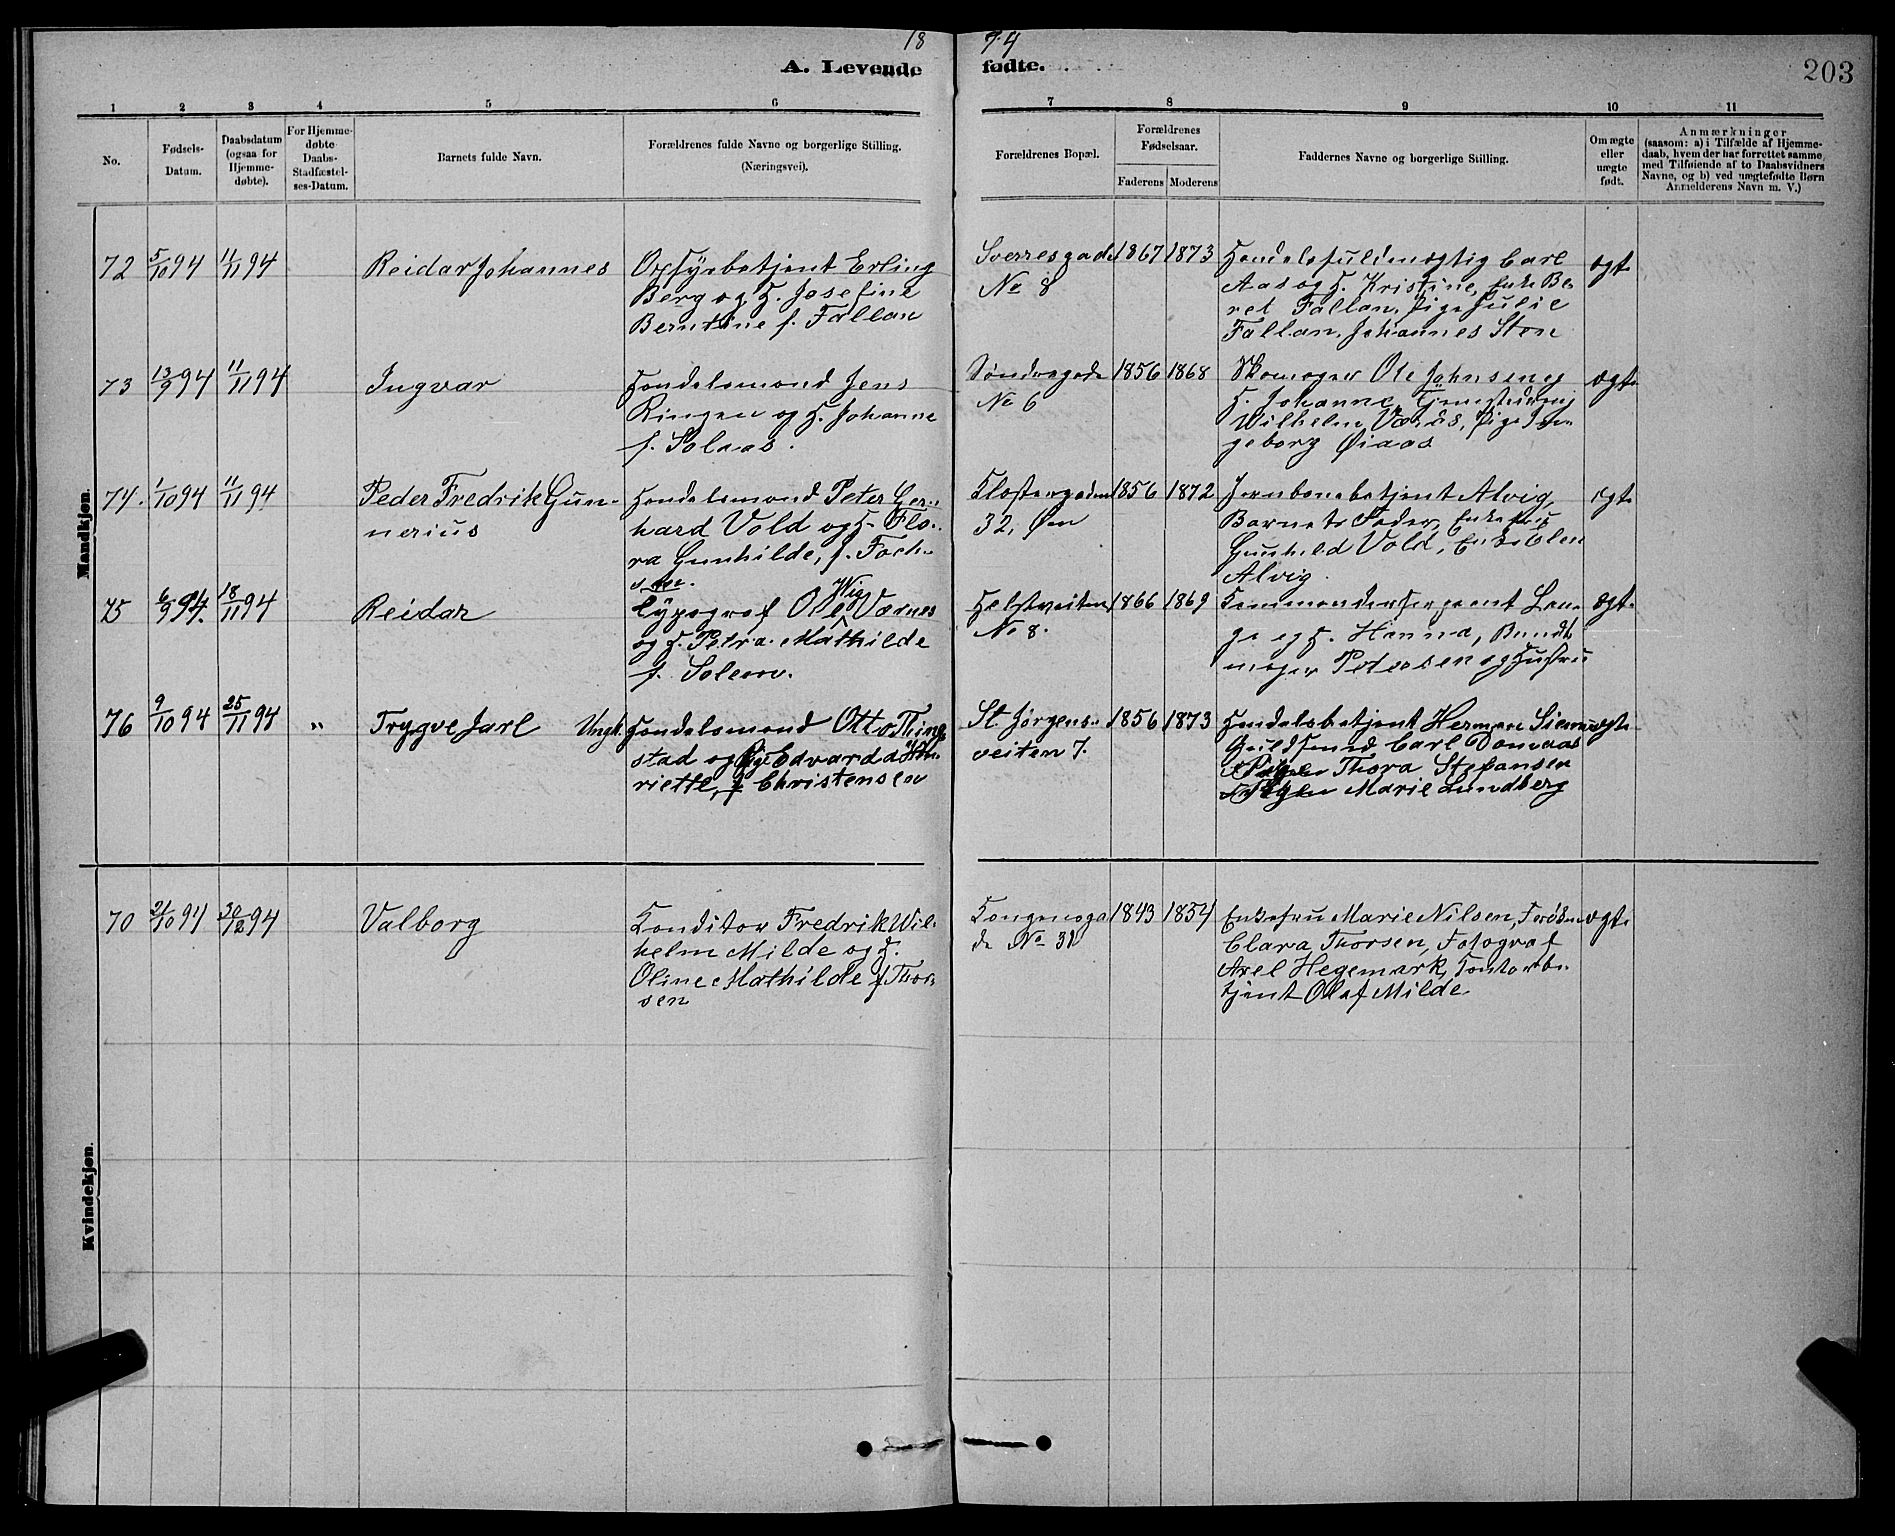 18 94
A. Levende fødte.
203
1 2 3 4 5 6 7 8 9 10 11
No.
Fødsels-
Datum.
Daabsdatum
(ogsaa for
Hjemme-
døbte).
For Hjemme-
døbte
Daabs-
Stadfæstel-
ses-Datum.
Barnets fulde Navn.
Forældrenes fulde Navne og borgerlige Stilling.
(Næringsvei).
Forældrenes Bopæl.
Forældrenes
Fødselsaar.
Faderens Moderens
Faddernes Navne og borgerlige Stilling.
Om ægte
eller
uægte
født.
Anmærkninger
(saasom: a) i Tilfælde af Hjemme-
daab, hvem der har forrettet samme,
med Tilføiende af to Daabsvidners
Navne, og b) ved uægtefødte Børn
Anmelderens Navn m. V.)
Mandkjøn.
72 5/10 94 11/11 94
Reidar Johannes
Opsynsbetjent Erling
Berg og H. Josefine
Berntine f. Fallan
Sverresgade
No 8
1867 1873
Handelsfuldmægtig Carl
Aas og H. Kristine, Enke Be-
ret Fallan, Pige Julie
Fallan, Johannes Sten
ægte
73 13/9 94 11/11 94
Ingvar
Handelsmand Jens
Ringen og H. Johanne
f. Solaas.
Søndregade
No 6
1856 1868
Skomager Ole Johnsen og
H. Johanne,
Wilhelm Pige In-
geborg Øiaas
ægte
74. 1/10 94 11/11 94
Peder Fredrik Gun-
nerius
Handelsmand Peter Ger-
hard Vold og H. Flo-
ra Gunhilde, f.
Klostergaden
32, Øen
1856 1872
Jernbanebetjent Alvig,
Barnets Fader, Enkefru
Gunhild Vold, Enke Elen
Alvig.
ægte
75 6/9 94. 18/11 94
Reidar
Typograf Ole Wig Værnes
og H. Petra Mathilde
f. Solem.
No 8.
1866 1869
Kommandersergeant Lan-
ge og H. Hanna, Bundt-
mager Petersen og Hustru
ægte
76 9/10 94 25/11 94 "
Trygve Jarl
Ungk.
Handelsmand Otto Thing-
stad og Pige Edvarda Hen-
riette, f Christensen
St. Jørgens-
veiten 7.
1856 1873
Handelsbetjent Herman
Guldsmed Carl
Pigen Thora Stefansen
Pigen Marie Lundberg
ægte
Kvindekjøn.
70 21/10 94 30/12 94
Valborg
Konditor Fredrik Wil-
helm Milde og H.
Oline Mathilde f Thor-
sen
Kongensga-
de No 31
1843 1854
Enkefru Marie Nilsen, Frøken
Clara Thorsen, Fotograf
Axel Hegemark, Kontorbe-
tjent Olaf Milde.
ægte